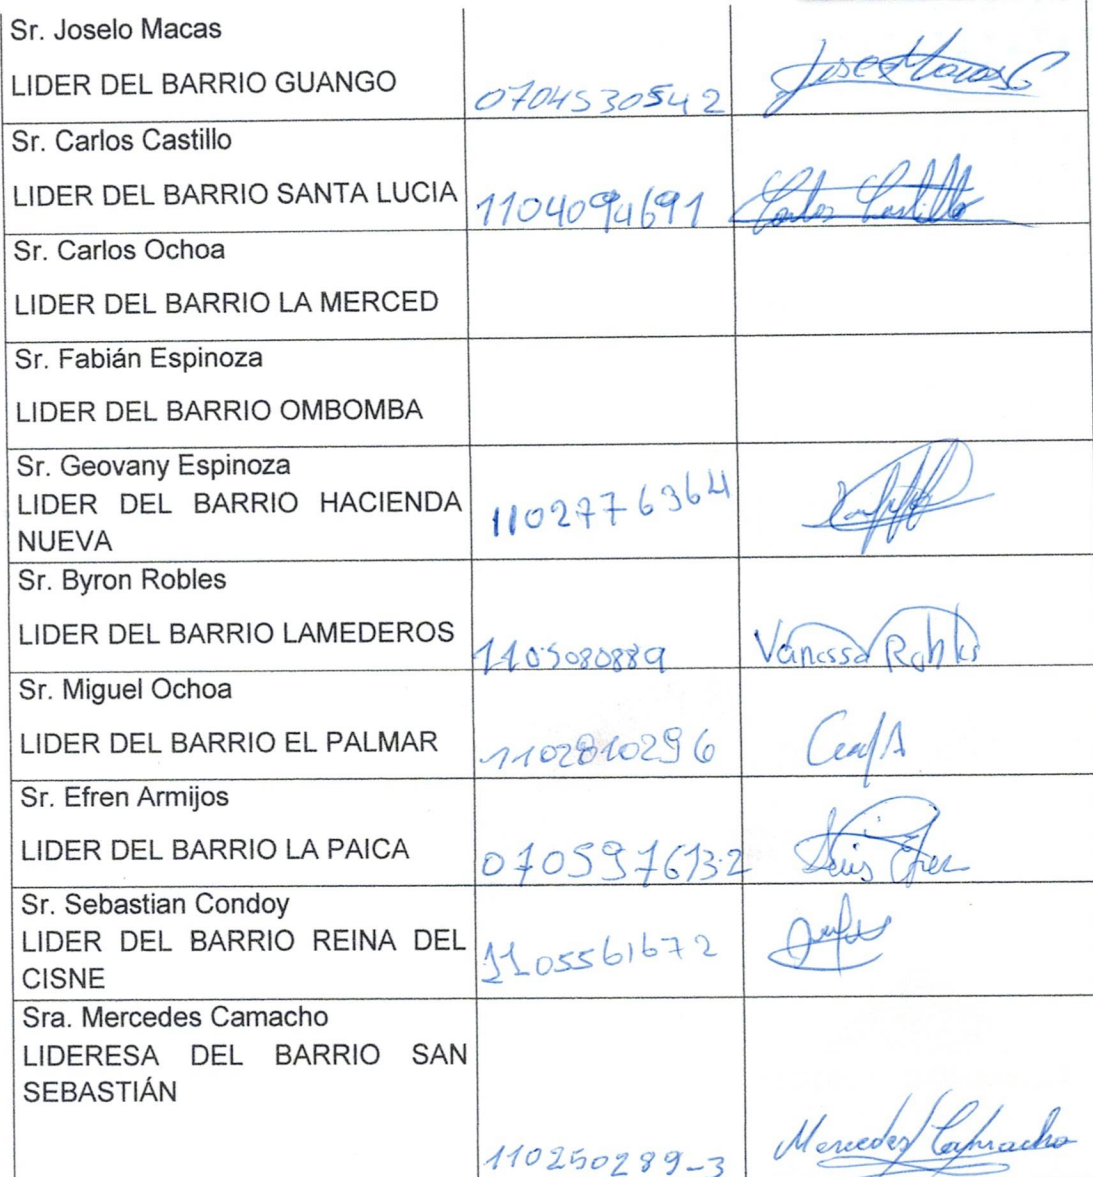 Sr. Joselo Macas
LIDER DEL BARRIO GUANGO
0704530542
Sr. Carlos Castillo
LIDER DEL BARRIO SANTA LUCIA
1104094691
Carlos Castillo
Sr. Carlos Ochoa
LIDER DEL BARRIO LA MERCED
Sr. Fabián Espinoza
LIDER DEL BARRIO OMBOMBA
Sr. Geovany Espinoza
LIDER DEL BARRIO HACIENDA
NUEVA
1102776364
Sr. Byron Robles
LIDER DEL BARRIO LAMEDEROS
1105080889
Vanessa Robles
Sr. Miguel Ochoa
LIDER DEL BARRIO EL PALMAR
1102810296
Sr. Efren Armijos
LIDER DEL BARRIO LA PAICA
070597613-2
Luis Efren
Sr. Sebastian Condoy
LIDER DEL BARRIO REINA DEL
CISNE
1105561672
Sra. Mercedes Camacho
LIDERESA DEL BARRIO SAN
SEBASTIÁN
110250289-3
Mercedes Camacho